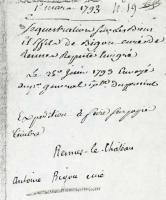 1er mars 1793 N. 19
Sequestration sur les biens
et effets de Bigou curé de
Rennes Reputé émigré
Le 25e Juin 1793 Envoyé
au gl general
Expedition à faire
timbre
Rennes-le-Château
Antoine Bigou curé